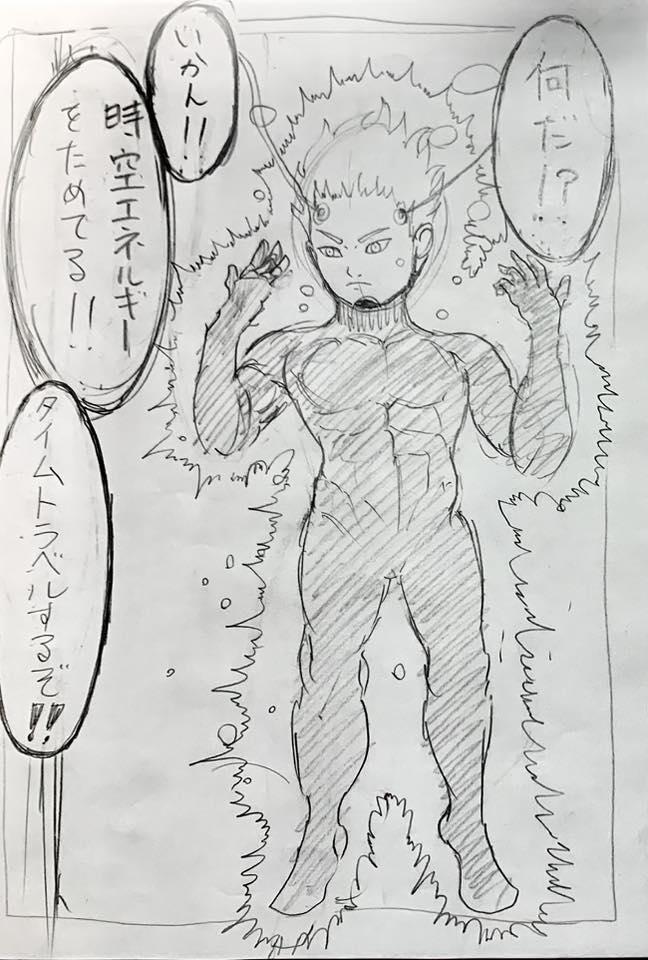 何だ!?
いかん!!
時空エネルギー
をためてる!!
タイムトラベルするぞ!!